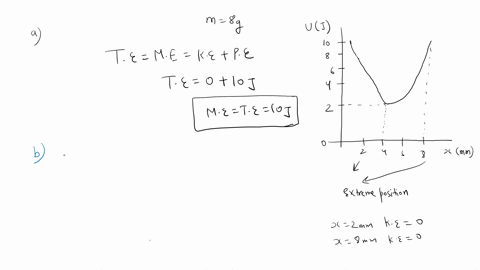 a)
m=8g
T.E = M.E = K.E + P.E
T.E = 0 + 10J
M.E = T.E = 10J
b)
U(J)
10
8
6
4
2
0
2 4 6 8 x(mm)
Extreme position
x=2mm K.E=0
x=8mm K.E=0